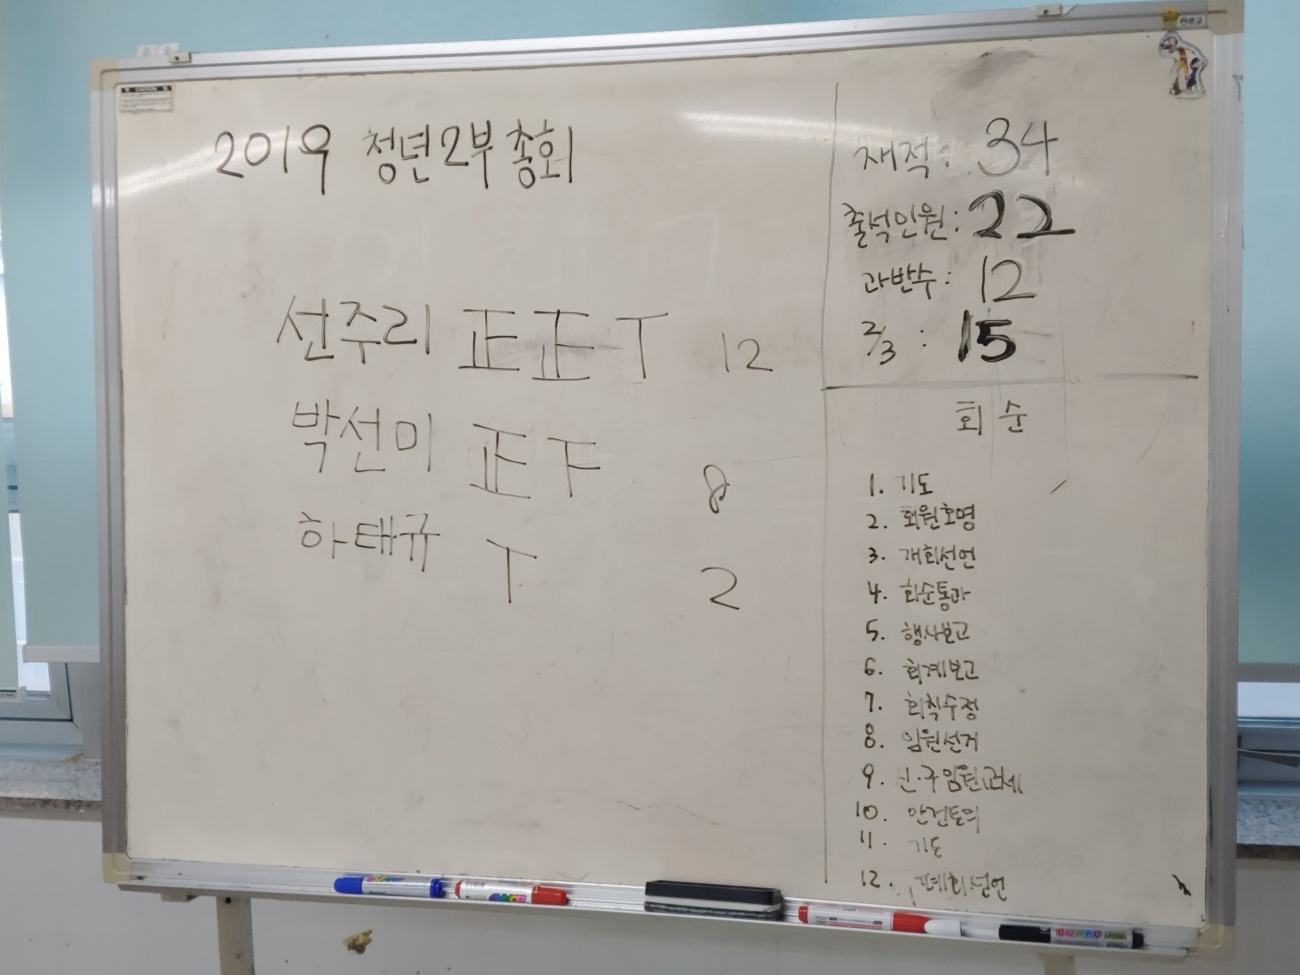 2019 청년2부 총회
선주리 正 正 T 12
박선미 正 F 8
하태규 T 2
재적: 34
출석인원: 22
과반수: 12
2/3 : 15
회 순
1. 기도
2. 회원호명
3. 개회선언
4. 회순통과
5. 행사보고
6. 회계보고
7. 회칙수정
8. 임원선거
9. 신·구임원교체
10. 안건토의
11. 기도
12. 폐회선언
CAUTION